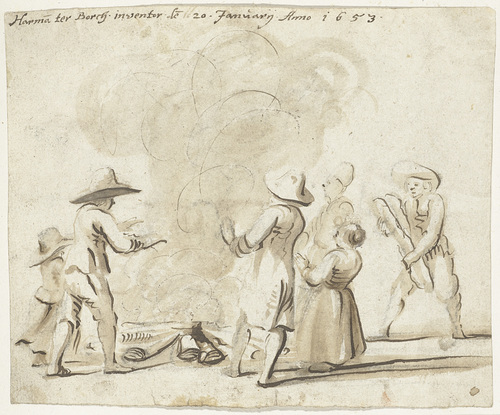 Harmã ter Borch · inventor · le 20 · January · Anno 1653 ·